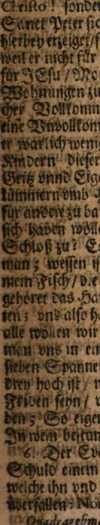 Christo! sonder
Sanct Peter sic
hierbey erzeiget/
weil er nicht für
für JEsu / Mo
Wohnungen zu
cher Vollkomm
eine Unvollkom
er warlich weni
Kindern dieser
Geitz vnnd Eig
für andere zu ba
sich haben wöll
Schloß zu? E
man; wessen i
mein Fisch / die
gehöret das Ha
ten; vnd also h
alle wollen wir
man vns in ein
sieben Spanne
drey hoch ist /
Frieden seyn /
den; So eige
In wem bestun
6. Der Ev
Schuld einem
welche ihn vnd
vberfallen: No